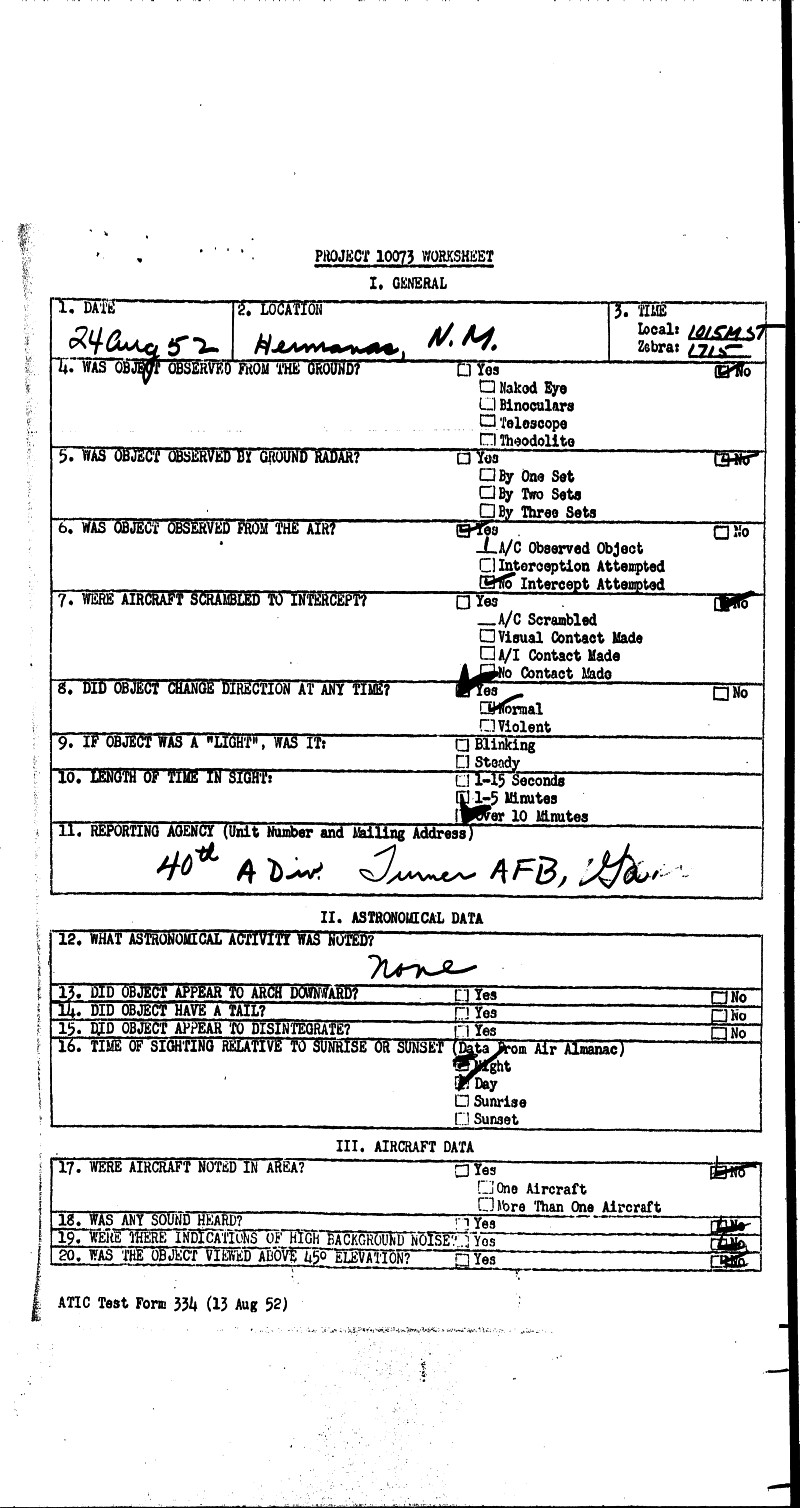 PROJECT 10073 WORKSHEET
I. GENERAL
1. DATE
24 Aug 52
2. LOCATION
Hermanas, N.M.
3. TIME
Local: 1015MST
Zebra: 1715
4. WAS OBJECT OBSERVED FROM THE GROUND?
Yes No
Naked Eye
Binoculars
Telescope
Theodolite
5. WAS OBJECT OBSERVED BY GROUND RADAR?
Yes No
By One Set
By Two Sets
By Three Sets
6. WAS OBJECT OBSERVED FROM THE AIR?
Yes No
1 A/C Observed Object
Interception Attempted
No Intercept Attempted
7. WERE AIRCRAFT SCRAMBLED TO INTERCEPT?
Yes No
A/C Scrambled
Visual Contact Made
A/I Contact Made
No Contact Made
8. DID OBJECT CHANGE DIRECTION AT ANY TIME?
Yes No
Normal
Violent
9. IF OBJECT WAS A "LIGHT", WAS IT:
Blinking
Steady
10. LENGTH OF TIME IN SIGHT:
1-15 Seconds
1-5 Minutes
Over 10 Minutes
11. REPORTING AGENCY (Unit Number and Mailing Address)
40th A Div. Turner AFB,
II. ASTRONOMICAL DATA
12. WHAT ASTRONOMICAL ACTIVITY WAS NOTED?
None
13. DID OBJECT APPEAR TO ARCH DOWNWARD? Yes No
14. DID OBJECT HAVE A TAIL? Yes No
15. DID OBJECT APPEAR TO DISINTEGRATE? Yes No
16. TIME OF SIGHTING RELATIVE TO SUNRISE OR SUNSET (Data From Air Almanac)
Night
Day
Sunrise
Sunset
III. AIRCRAFT DATA
17. WERE AIRCRAFT NOTED IN AREA?
Yes No
One Aircraft
More Than One Aircraft
18. WAS ANY SOUND HEARD? Yes No
19. WERE THERE INDICATIONS OF HIGH BACKGROUND NOISE? Yes No
20. WAS THE OBJECT VIEWED ABOVE 45° ELEVATION? Yes No
ATIC Test Form 334 (13 Aug 52)